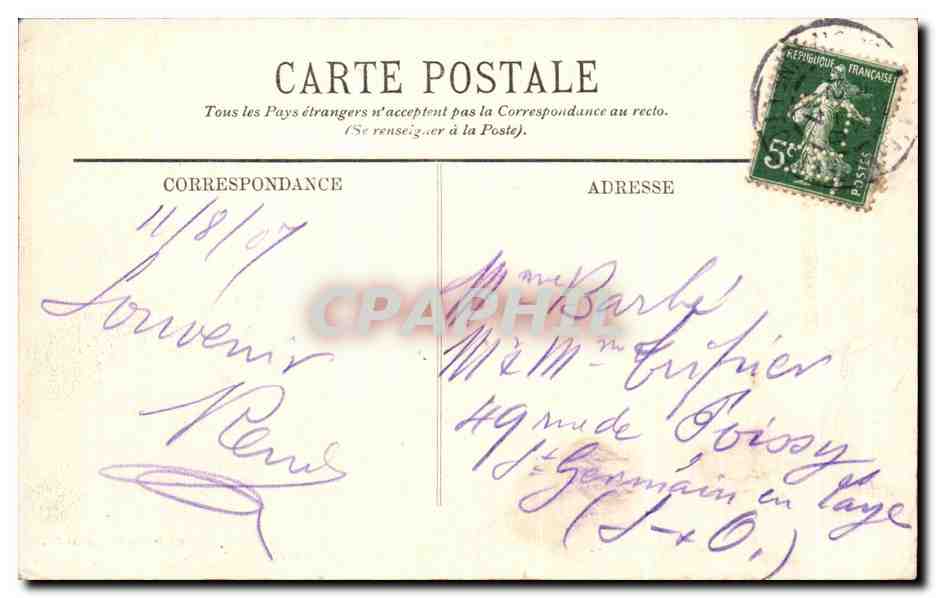 CARTE POSTALE
Tous les Pays étrangers n'acceptent pas la Correspondance au recto.
(Se renseigner à la Poste).
CORRESPONDANCE
11/8/07
Souvenir
René
ADRESSE
Mme Barbé
M & Mme Tripier
49 rue de Poissy
St Germain en Laye
(S-&O.)
REPUBLIQUE FRANÇAISE
5c
POSTES
CPAPHIL